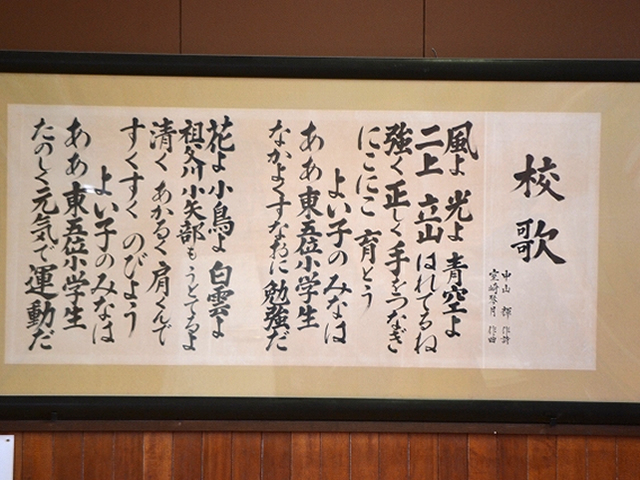 校歌
中山 輝 作詩
室崎琴月 作曲
風よ 光よ 青空よ
二上 立山 はれてるね
強く 正しく 手をつなぎ
にこにこ 育とう
よい子のみなは
ああ 東五位小学生
なかよくすなおに 勉強だ
花よ 小鳥よ 白雲よ
祖父川 小矢部も うたてるよ
清く あかるく 肩くんで
すくすく のびよう
よい子のみなは
ああ 東五位小学生
たのしく元気で 運動だ